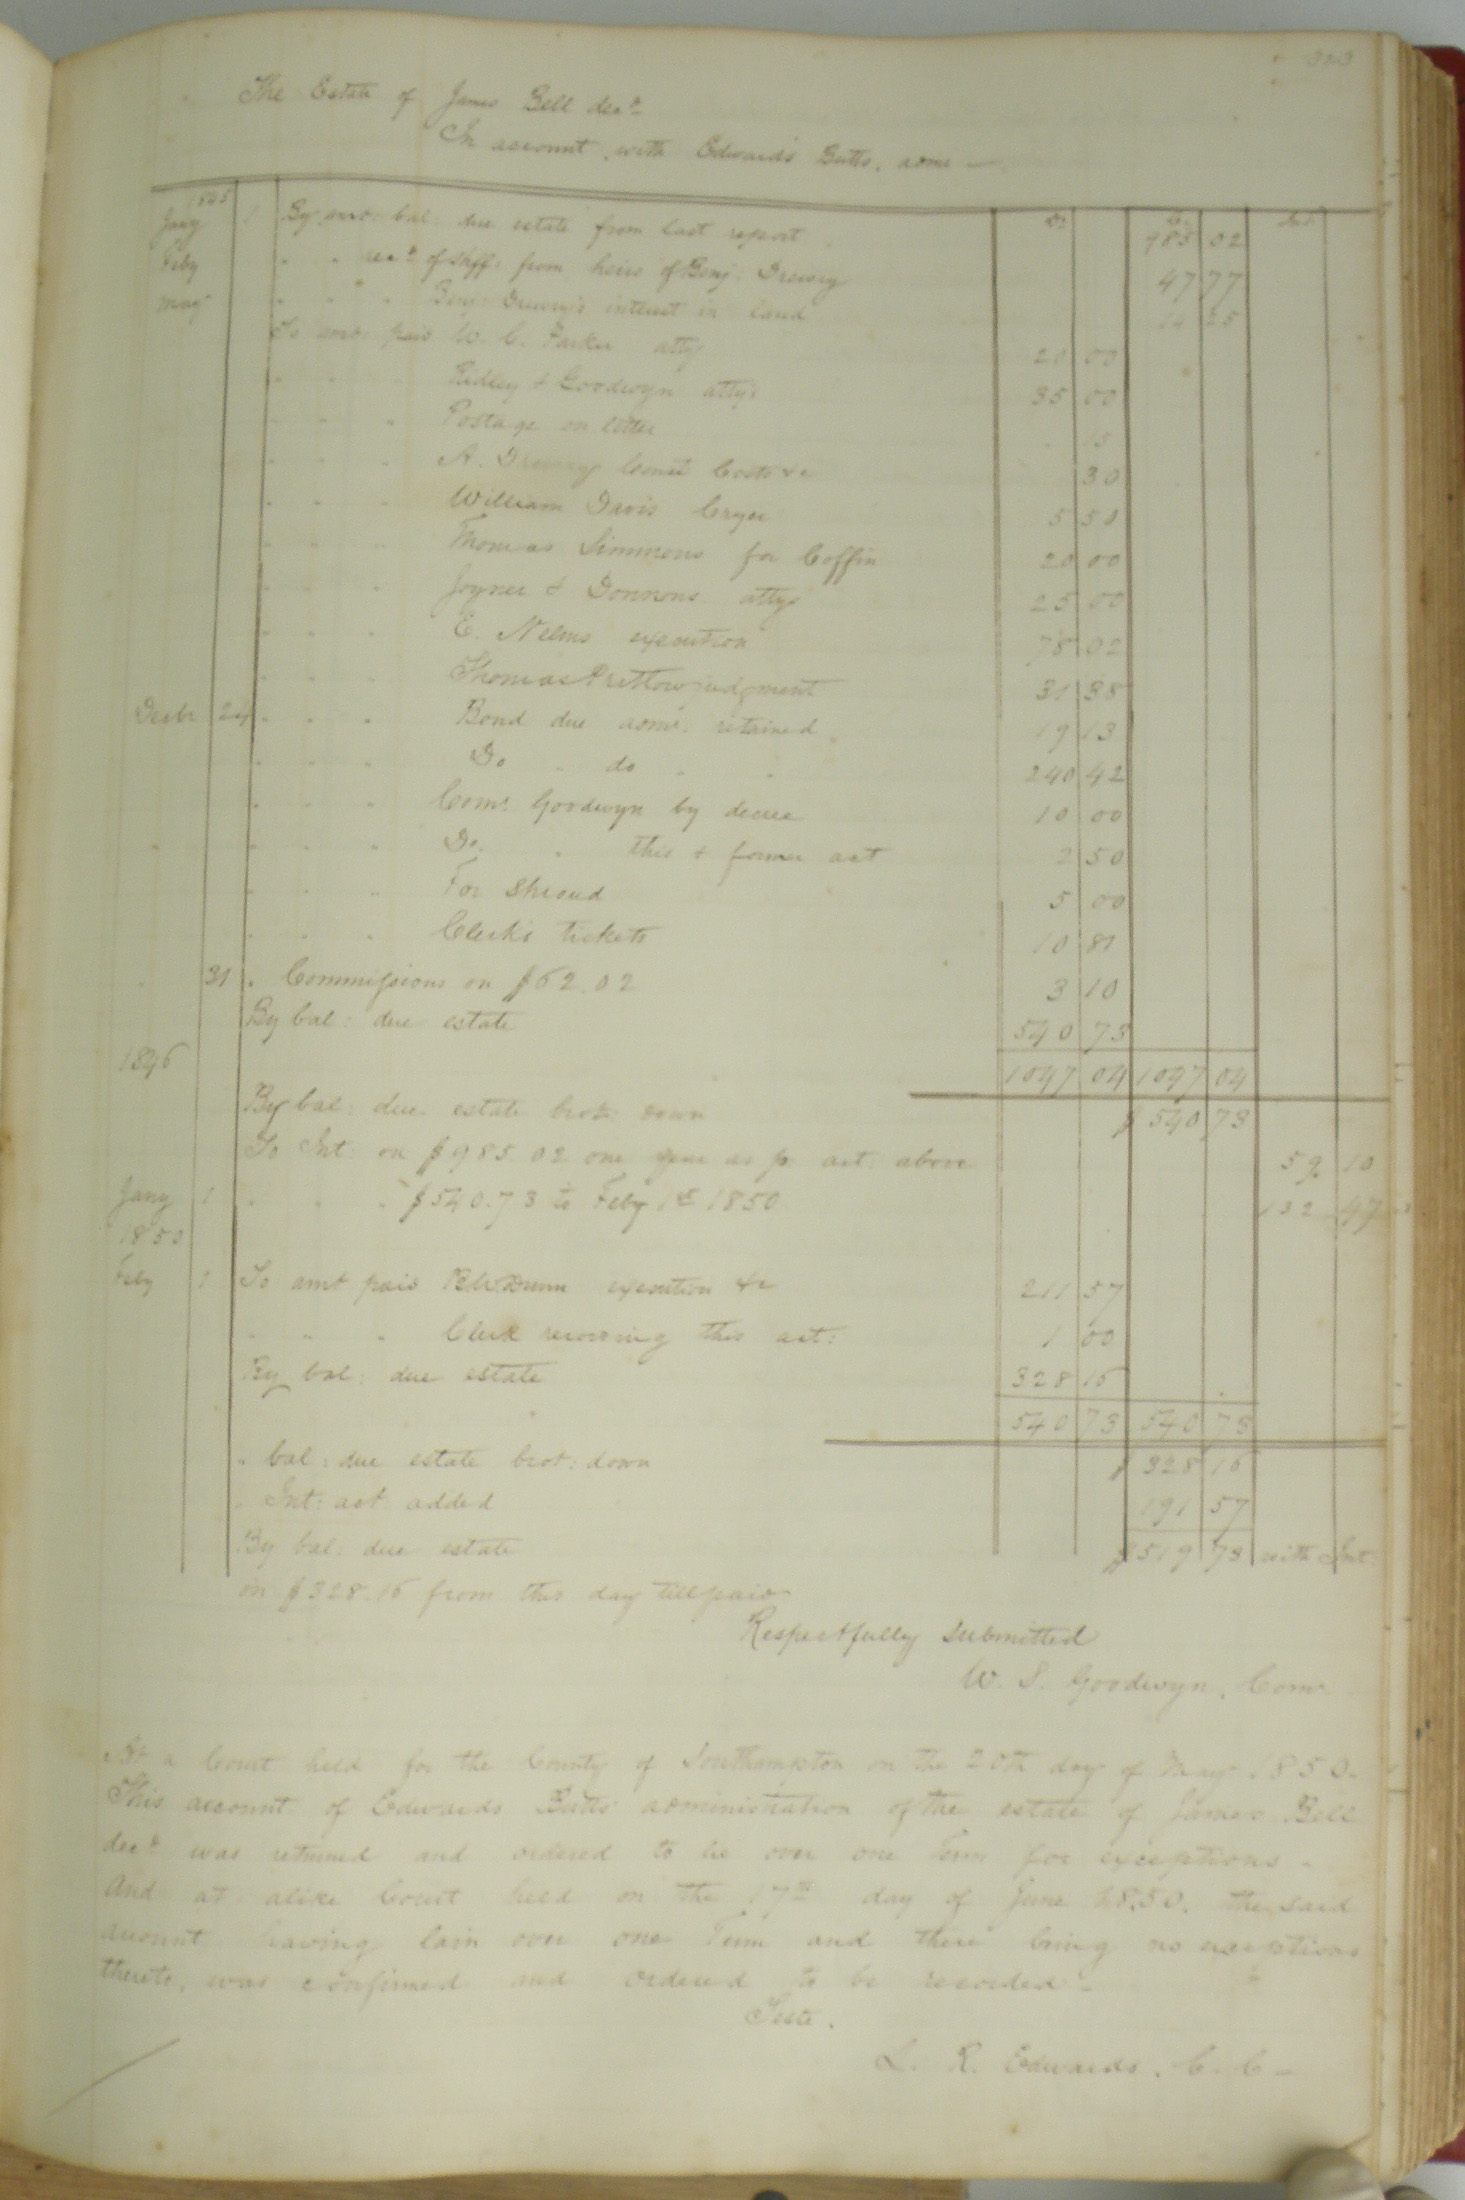 The Estate of James Bell decd
In account with Edwards Butts, admr —
1845 Dr Cr Int
Jany 1 By amt bal: due estate from last report 985 02
Feby " " recd of Shff: from heirs of Benj: Drewry 47 77
May " " " Benj: Drewry's interest in land 14 25
To amt paid W. C. Parker atty 20 00
" " " Ridley & Goodwyn attys 35 00
" " " Postage on letter 15
" " " A. Drewry Const Costs &c 30
" " " William Davis Cryer 5 50
" " " Thomas Simmons for Coffin 20 00
" " " Joyner & Donnons attys 25 00
" " " E. Nelms execution 78 02
" " " Thomas Pretlow judgment 31 38
Decbr 24 " " " Bond due admr. retained 19 13
" " " Do " do " " 240 42
" " " Comr. Goodwyn by decree 10 00
" " " " Do. " this & former act 2 50
" " " For Shroud 5 00
" " " Clerk's tickets 10 81
" 31 " Commissions on $62.02 3 10
By bal: due estate 540 73
1846 1047 04 1047 04
By bal: due estate brot: down $540 73
To Int: on $985.02 one year as pr act: above 59 10
Jany 1 " " " $540.73 to Feby 1st 1850 132 47
1850
Feby 1 To amt paid Dunn execution &c 211 57
" " " Clerk recording this act: 1 00
By bal: due estate 328 16
540 73 540 73
" bal: due estate brot: down $328 16
" Int: act: added 191 57
By bal: due estate $519 73 with Int:
on $328.16 from this day till paid
Respectfully Submitted
W. S. Goodwyn, Comr.
At a Court held for the County of Southampton on the 20th day of May 1850.
This account of Edwards Butts' administration of the estate of James Bell
decd was returned and ordered to lie over one Term for exceptions -
And at alike Court held on the 17th day of June 1850. the said
account having lain over one Term and there being no exceptions
thereto, was confirmed and ordered to be recorded -
Teste.
L. R. Edwards. C. C -